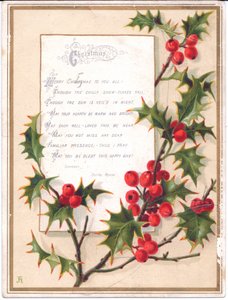 Christmas
Merry Christmas to you all!
Though the chilly snow-flakes fall
Though the sun is veil'd in night
May your hearts be warm and bright
May each well-loved tone be near
May you not miss any dear
Familiar presence - thus I pray
May you be blest this happy day!